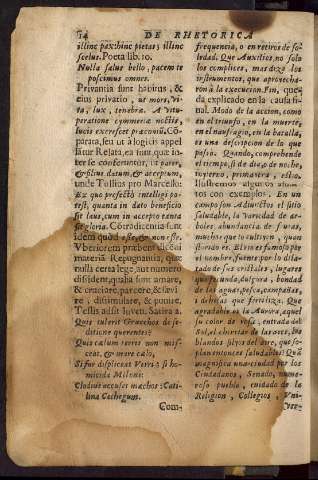 14 DE RHETORICA
illinc pax: hinc pietas; illinc
scelus. Poeta lib. 10.
Nulla salus bello, pacem te
poscimus omnes.
Privantia sunt habitus, &
eius privatio, ut mors, vi-
ta, lux, tenebræ. A vitu-
peratione cymmeriæ noctis,
lucis exercet præconiũ. Cõ-
parata, seu ut à logicis appel-
latur Relata, ea sunt quæ in-
ter se conferuntur, ut pater,
& filius datum, & acceptum,
unde Tullius pro Marcello.
Ex quo profectò intelligi po-
test, quanta in dato beneficio
sit laus, cum in accepto tanta
sit gloria. Cõtradicentia sunt
idem quod esse, & non esse.
Vberiorem præbent dicendi
materiã Repugnantia, quæ
nulla certa lege, aut numero
dissident, qualia sunt amare,
& cruciare, parcere, & sævi-
re, dissimulare, & punire.
Testis adsit Iuven. Satira 2.
Quis tulerit Gracchos de se-
ditione querentes?
Quis cælum terris non mis-
ceat, & mare cælo,
Si fur displiceat Verri? si ho-
micida Miloni:
Clodius accuset mæchos? Cati-
lina Cethegum.
Com-
frequencia, o en retiros de so-
ledad. Que Auxilios no solo
los complices, mas diga los
instrumentos, que aprovecha-
ron à la execucion. Fin, que
da explicado en la causa fi-
nal. Modo de la accion, como
en el triunfo, en la muerte,
en el naufragio, en la batalla,
es una descripcion de lo que
passò. Quando, comprehende
el tiempo, si de dia, de noche,
ivierno, primavera, estio.
Ilustremos algunos adiun-
tos con exemplos. En un
campo son Adiunctos el sitio
saludable, la variedad de ar-
boles, abundancia de fruta,
muchas que lo cultiven, quan
el nombre, fuente, por lo dila-
tado de sus cristales, lugares
que fecunda, dulçura, bondad
de las aguas, pesca, campañas,
que fertiliza. Que
agradable es la Aurora, aquel
su color de rosa, entrada del
Sol, el chirriar de las aves, los
blandos silvos del aire, que so-
plan entonces saludables! Quã
magnifica una ciudad por los
Ciudadanos, Senado, nume-
roso pueblo, cuidado de la
Religion, Collegios, Vni-